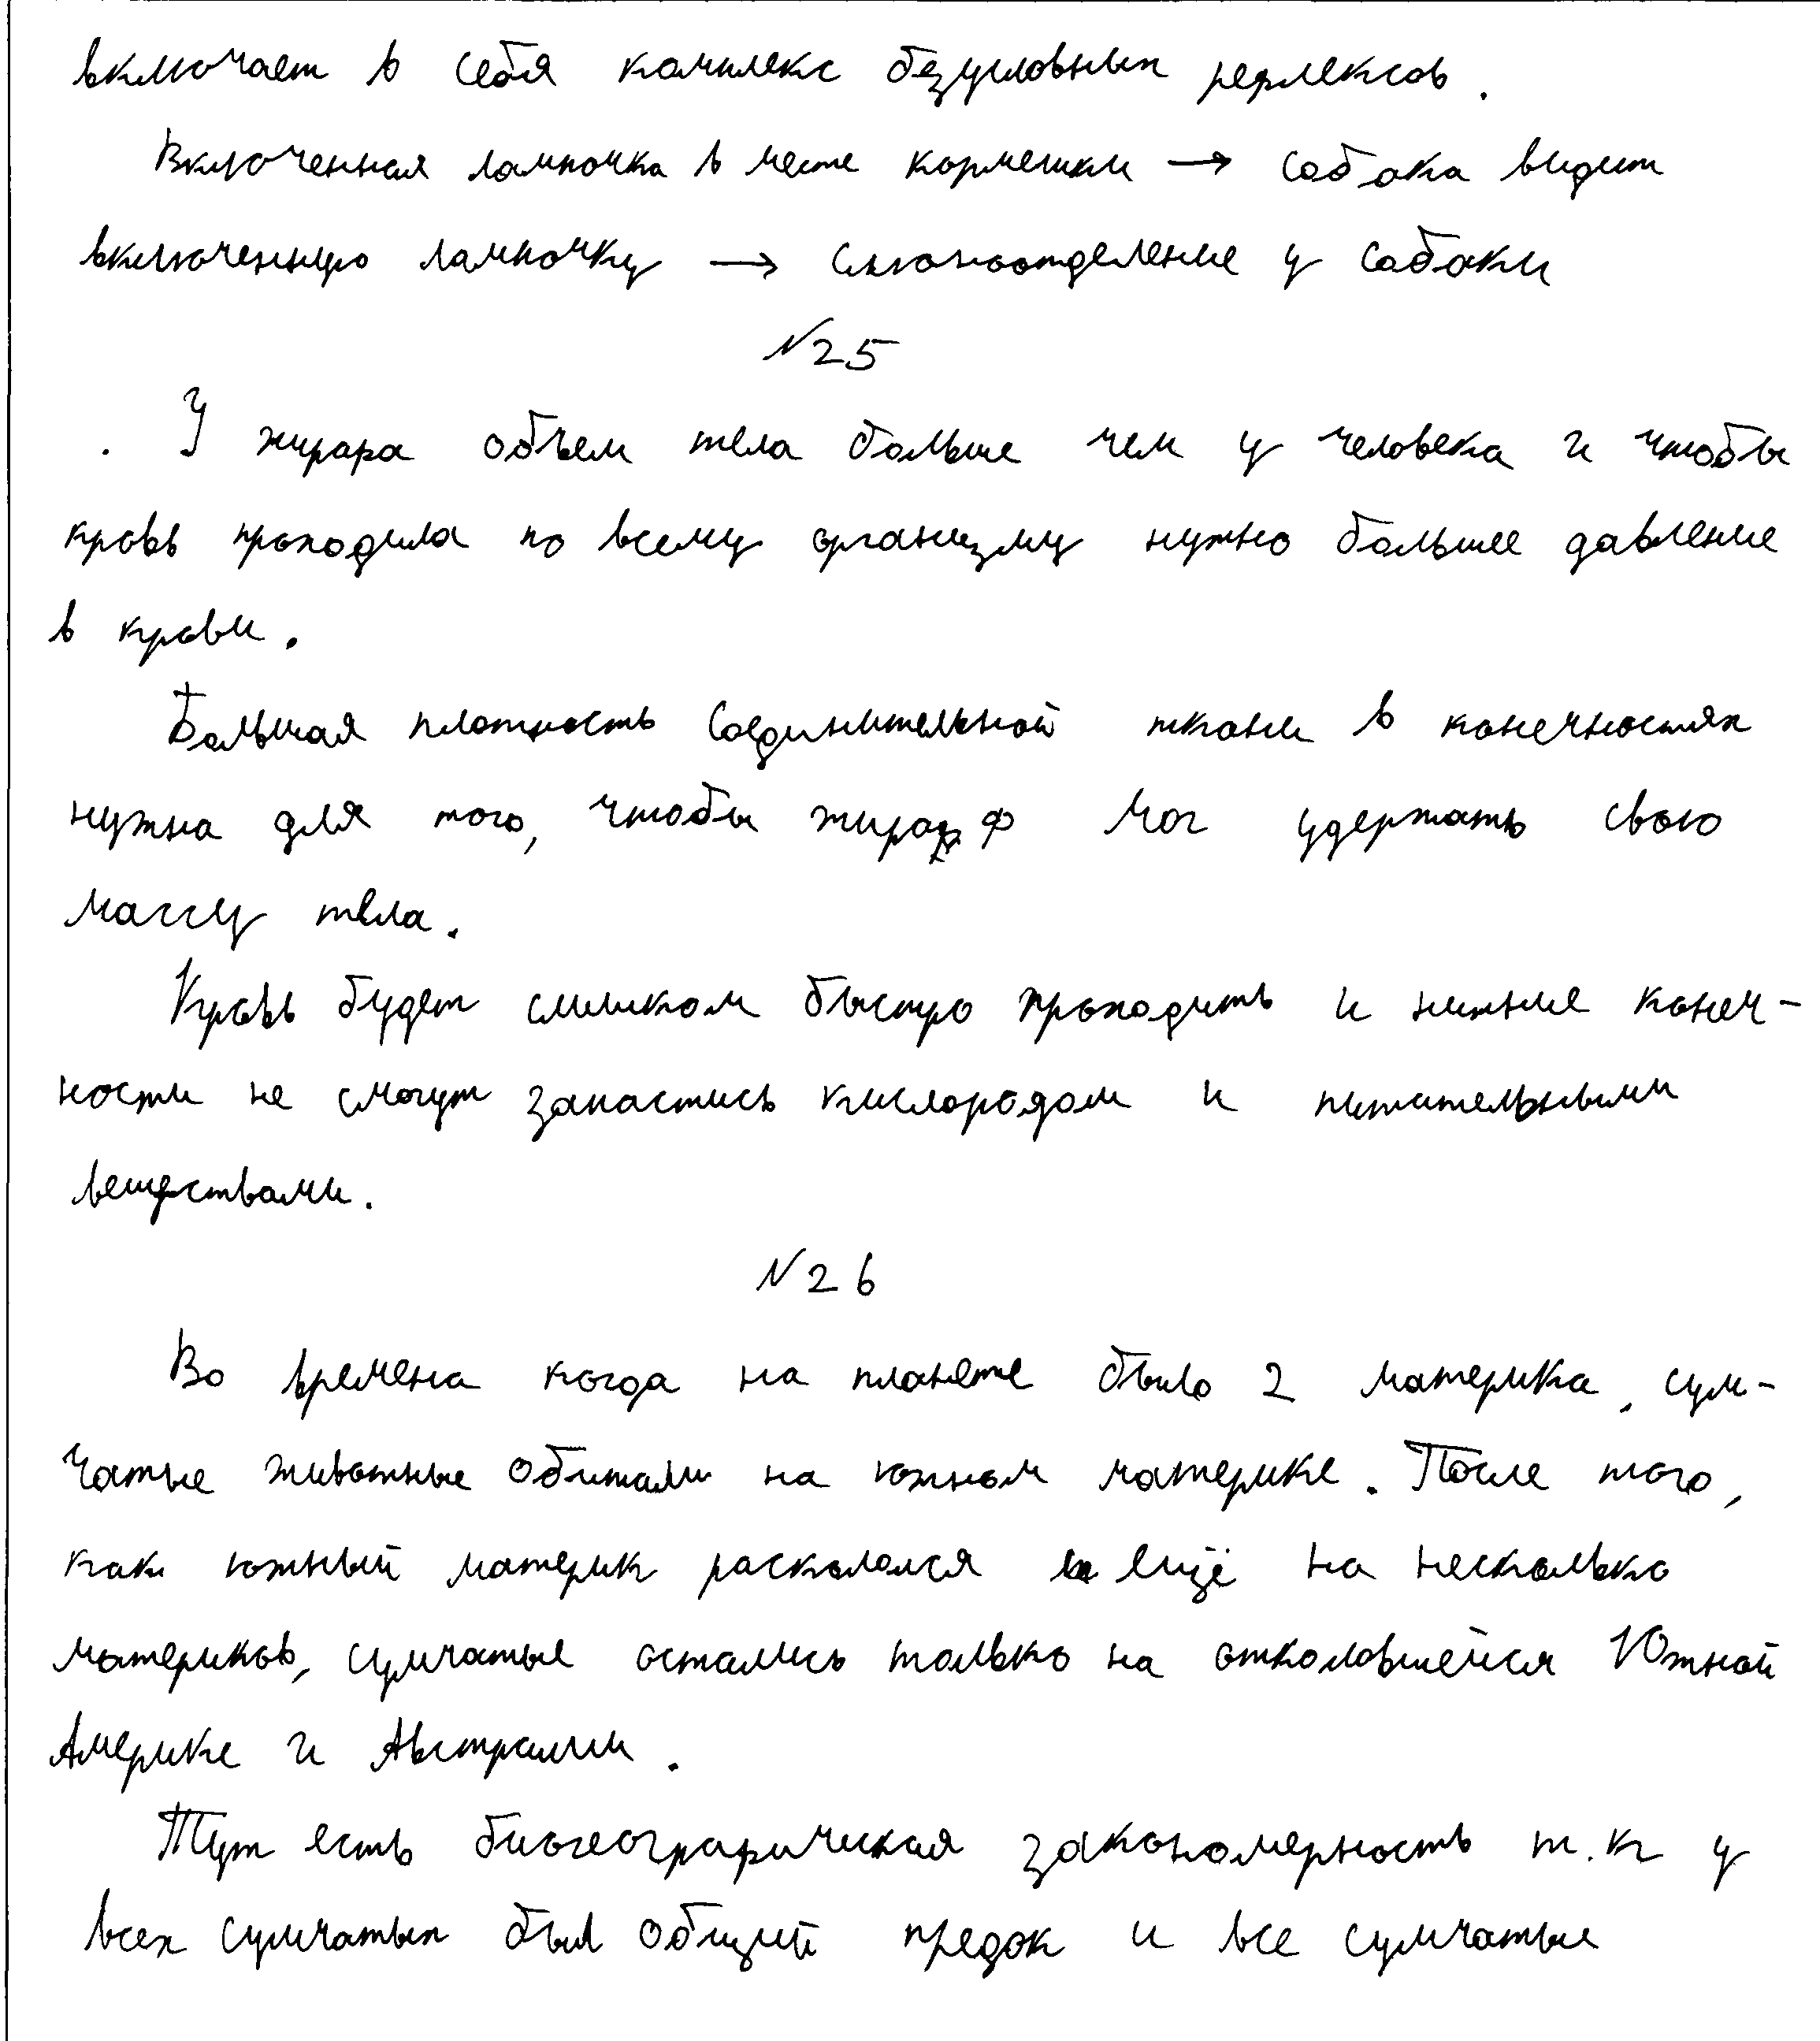 включает в себя комплекс безусловных рефлексов.
Включенная лампочка в месте кормешки → собака видит
включенную лампочку → слюноотделение у собаки
№25
. У жирафа объем тела больше чем у человека и чтобы
кровь проходила по всему организму нужно большее давление
в крови.
Большая плотность соединительной ткани в конечностях
нужна для того, чтобы жираф мог удержать свою
массу тела.
Кровь будет слишком быстро проходить и нижние конеч-
ности не смогут запастись кислородом и питательными
веществами.
№26
Во времена когда на планете было 2 материка, сум-
чатые животные обитали на южном материке. После того,
как южный материк раскололся ещё на несколько
материков, сумчатые остались только на отколовшейся Южной
Америке и Австралии.
Тут есть биогеографическая закономерность т.к у
всех сумчатых был общий предок и все сумчатые